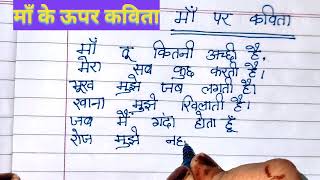 माँ के ऊपर कविता
माँ पर कविता
माँ तू कितनी अच्छी है,
मेरा सब कुछ करती है।
भूख मुझे जब लगती है।
खाना मुझे खिलाती है।
जब मैं गंदा होता हूँ
रोज मुझे नह